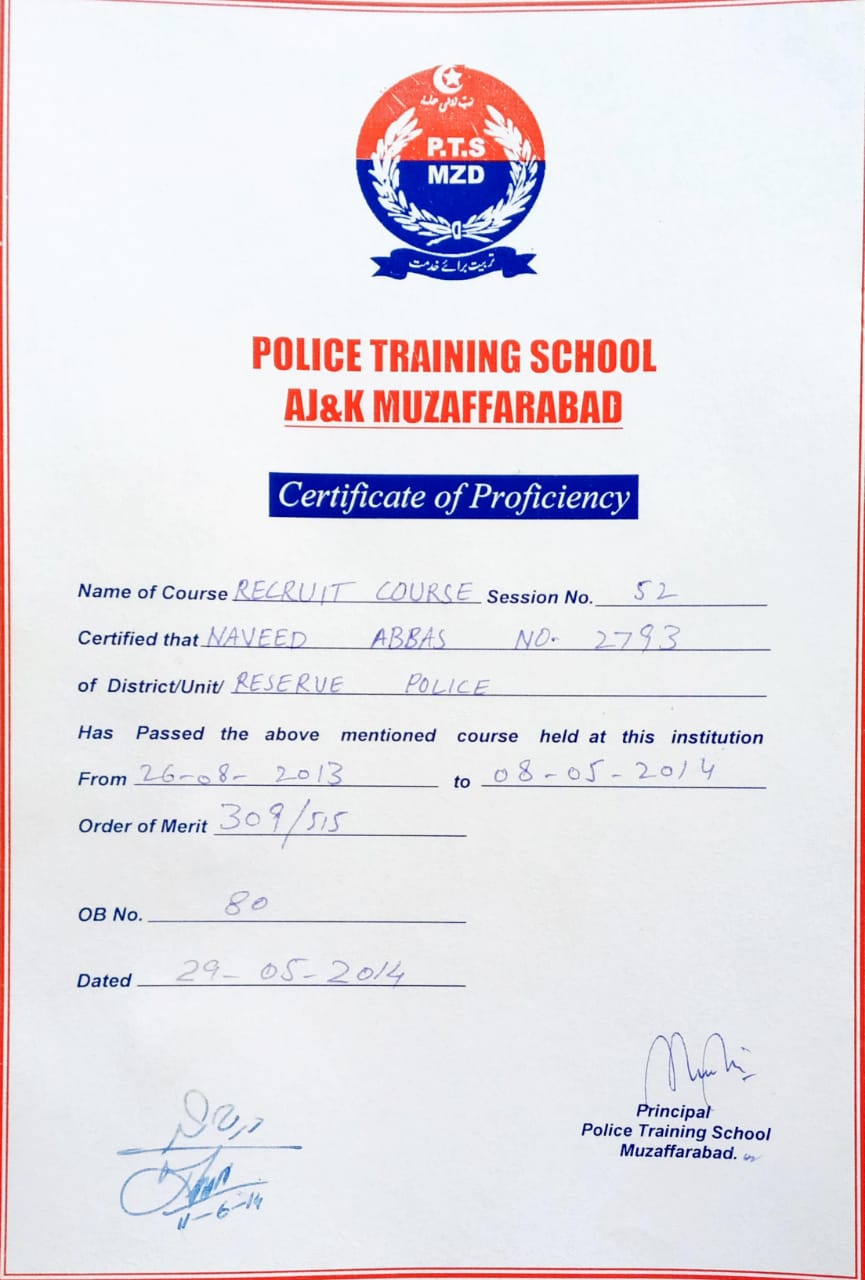 P.T.S
MZD
تربیت برائے خدمت
POLICE TRAINING SCHOOL
AJ&K MUZAFFARABAD
Certificate of Proficiency
Name of Course RECRUIT COURSE Session No. 52
Certified that NAVEED ABBAS NO. 2793
of District/Unit/ RESERVE POLICE
Has Passed the above mentioned course held at this institution
From 26-08- 2013 to 08-05-2014
Order of Merit 309/515
OB No. 80
Dated 29-05-2014
Principal
Police Training School
Muzaffarabad.
11-6-14